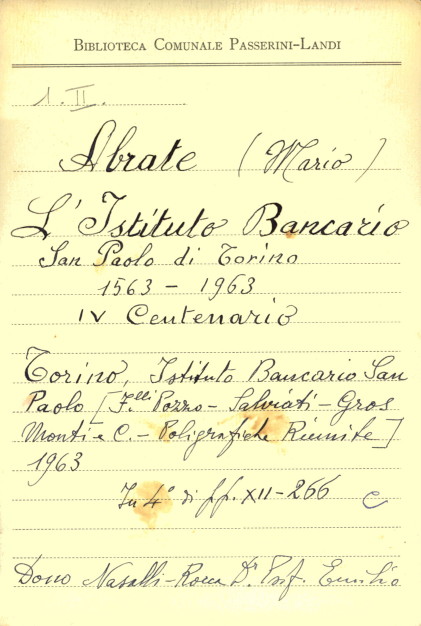 BIBLIOTECA COMUNALE PASSERINI-LANDI
1. II.
Abrate (Mario)
L'Istituto Bancario
San Paolo di Torino
1563 - 1963
IV Centenario
Torino, Istituto Bancario San
Paolo [F.lli Pozzo - Salviati - Gros
Monti e C. - Poligrafiche Riunite]
1963
In 4° di ff. XII-266 C
Dono Nasalli-Rocca Dr Prof. Emilio